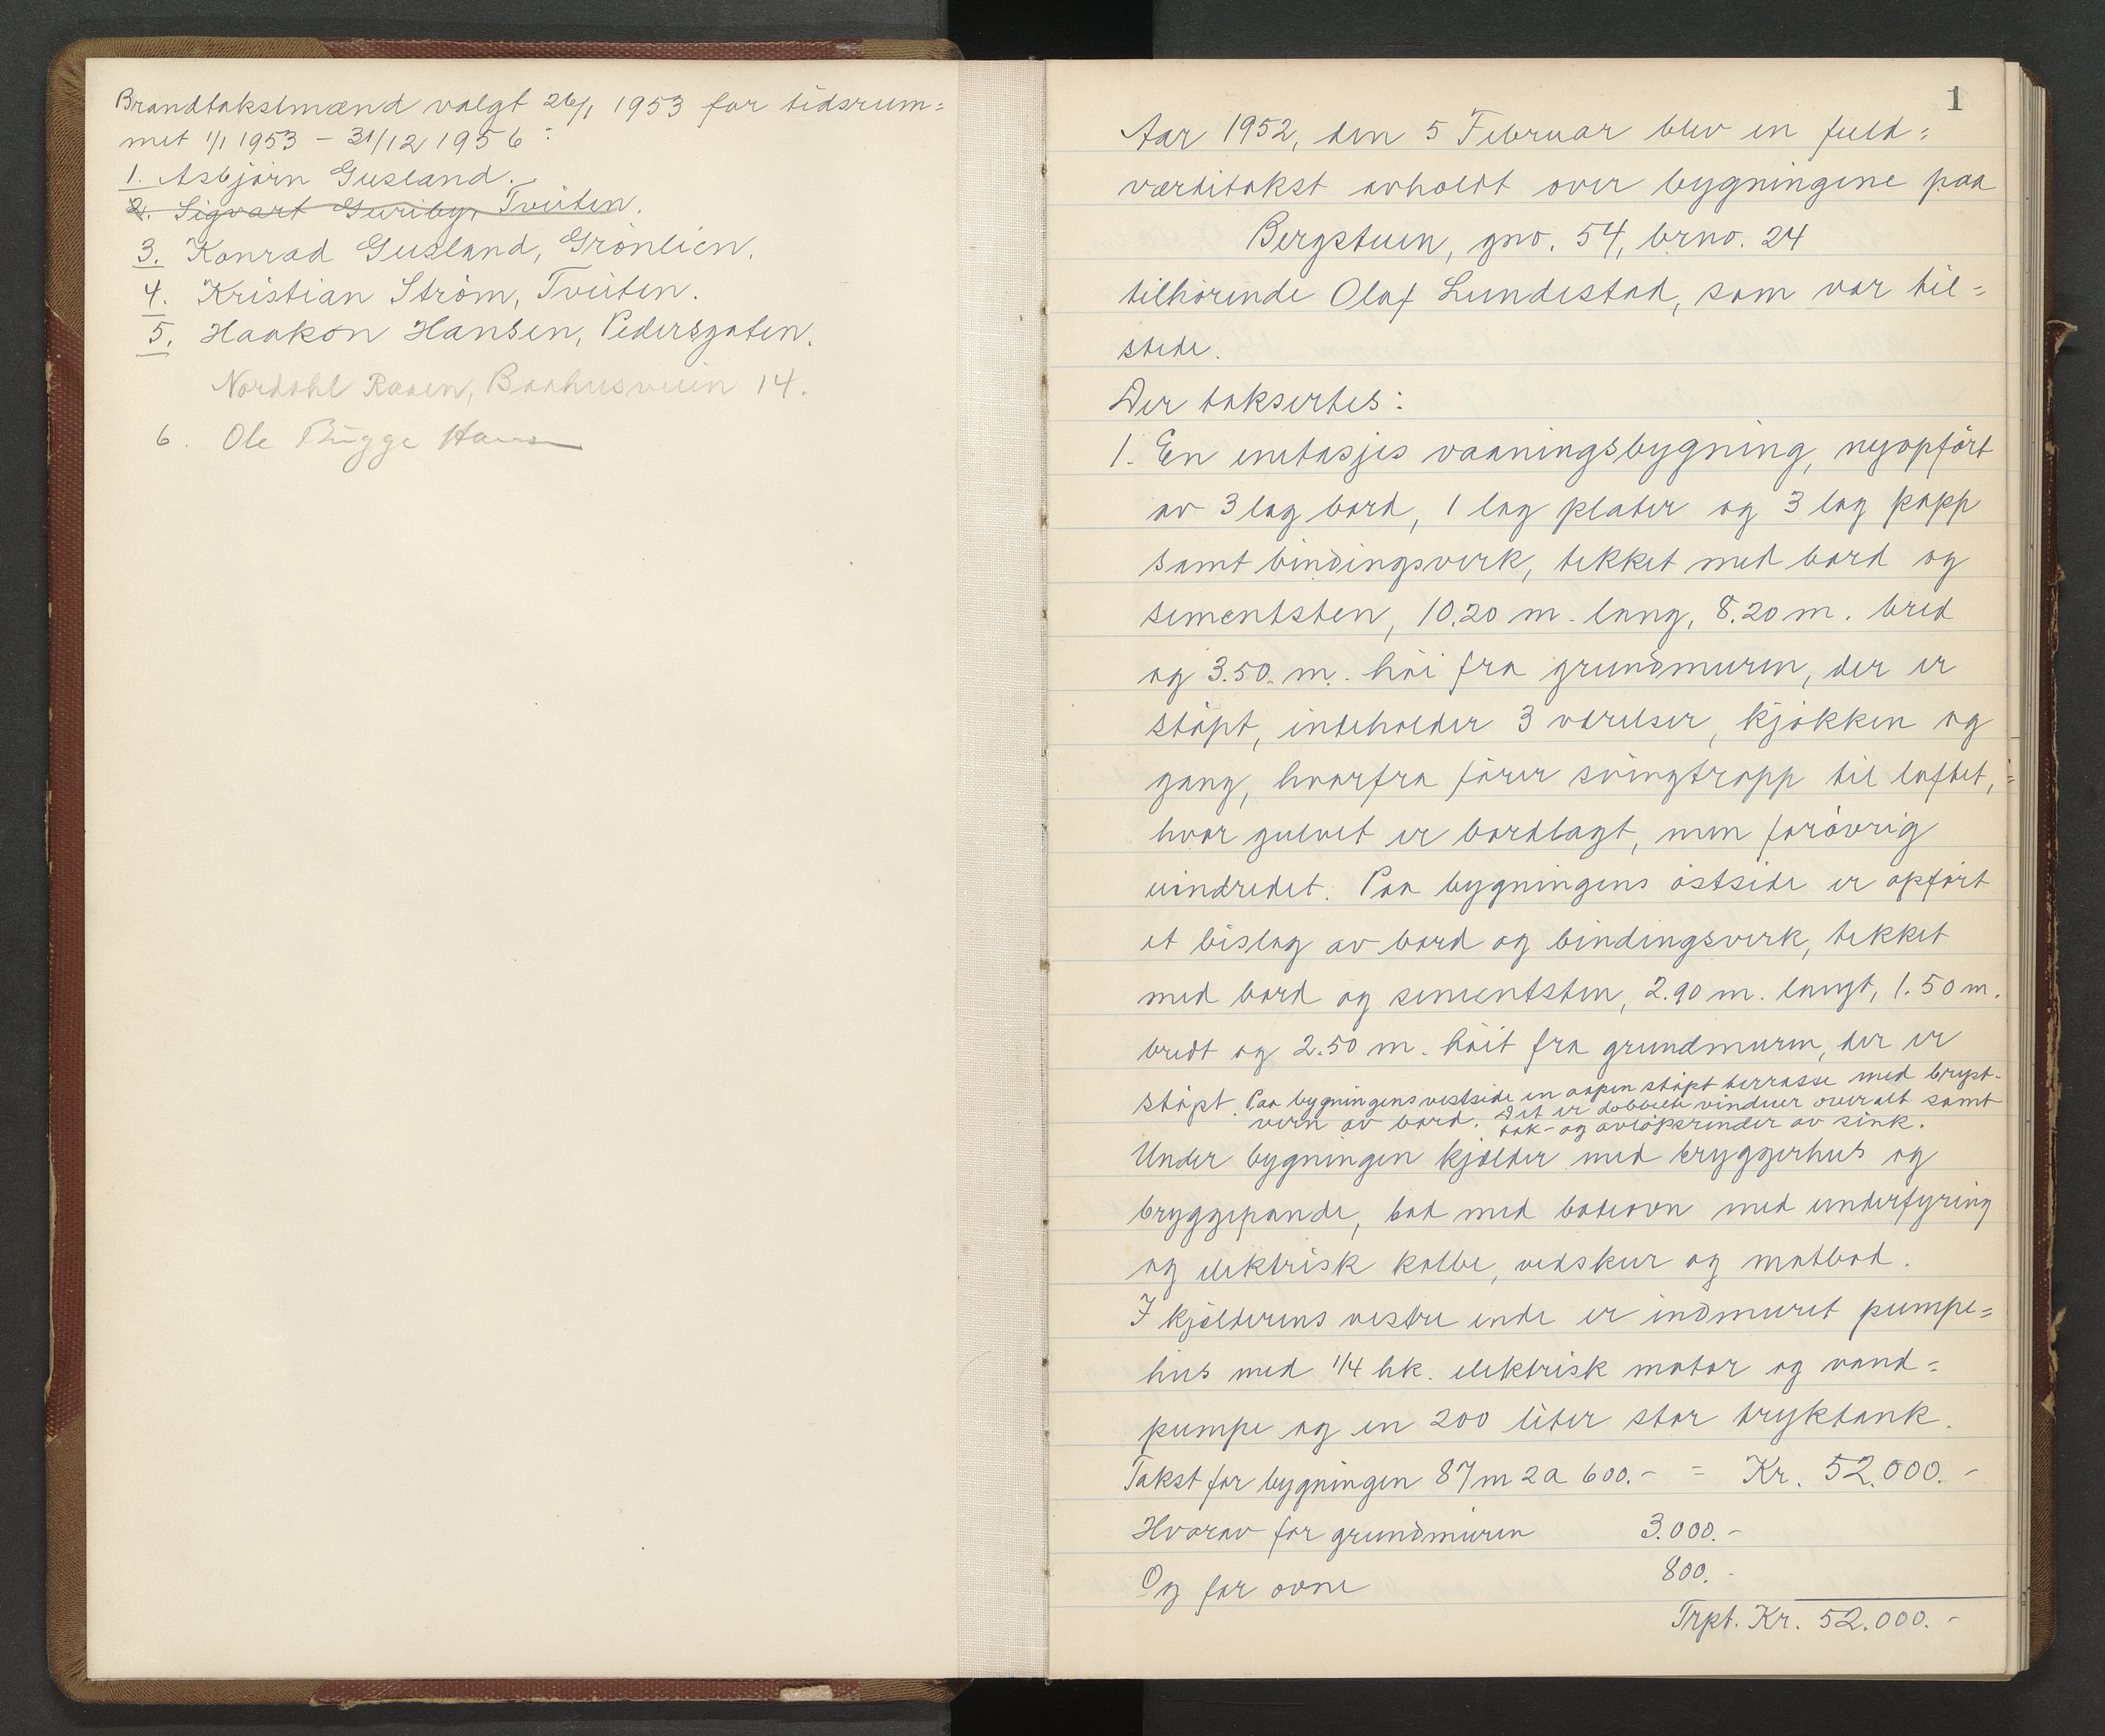 Brandtakstmænd valgt 26/1 1953 for tidsrum=
met 1/1 1953 - 31/12 1956:
1. Asbjørn Gusland.
2. Sigvart Guriby, Tveiten.
3. Konrad Gusland, Grønlien.
4. Kristian Strøm, Tveiten.
5. Haakon Hansen, Pedersgaten.
Nordahl Raaen, Baahusveien 14.
6. Ole Bugge Hansen
1
Aar 1952, den 5 Februar blev en fuld=
værditakst avholdt over bygningene paa
Bergstuen, gno. 54, brno. 24
tilhørende Olaf Lundestad, som var til=
stede.
Der taksertes:
1. En enetasjes vaaningsbygning, nyopført
av 3 lag bord, 1 lag plater og 3 lag papp
samt bindingsverk, tekket med bord og
sementsten, 10.20 m. lang, 8.20 m. bred
og 3.50 m. høi fra grundmuren, der er
støpt, indeholder 3 værelser, kjøkken og
gang, hvorfra fører svingtrapp til loftet,
hvor gulvet er bordlagt, men forøvrig
uindredet. Paa bygningens østside er opført
et bislag av bord og bindingsverk, tekket
med bord og sementsten, 2.90 m. langt, 1.50 m.
bredt og 2.50 m. høit fra grundmuren, der er
støpt. Paa bygningens vestside en aapen støpt terrasse med bryst-
vern av bord. Det er dobbelte vinduer overalt samt
tak- og avløpsrender av sink.
Under bygningen kjælder med bryggerhus og
bryggepande, bad med badeovn med underfyring
og elektrisk kolbe, vedskur og matbod.
I kjælderens vestre ende er indmuret pumpe=
hus med 1/4 hk. elektrisk motor og vand=
pumpe og en 200 liter stor tryktank.
Takst for bygningen 87 m2 a 600.- = Kr. 52.000.-
Hvorav for grundmuren 3.000.-
Og for ovne 800.-
Trpt. Kr. 52.000.-